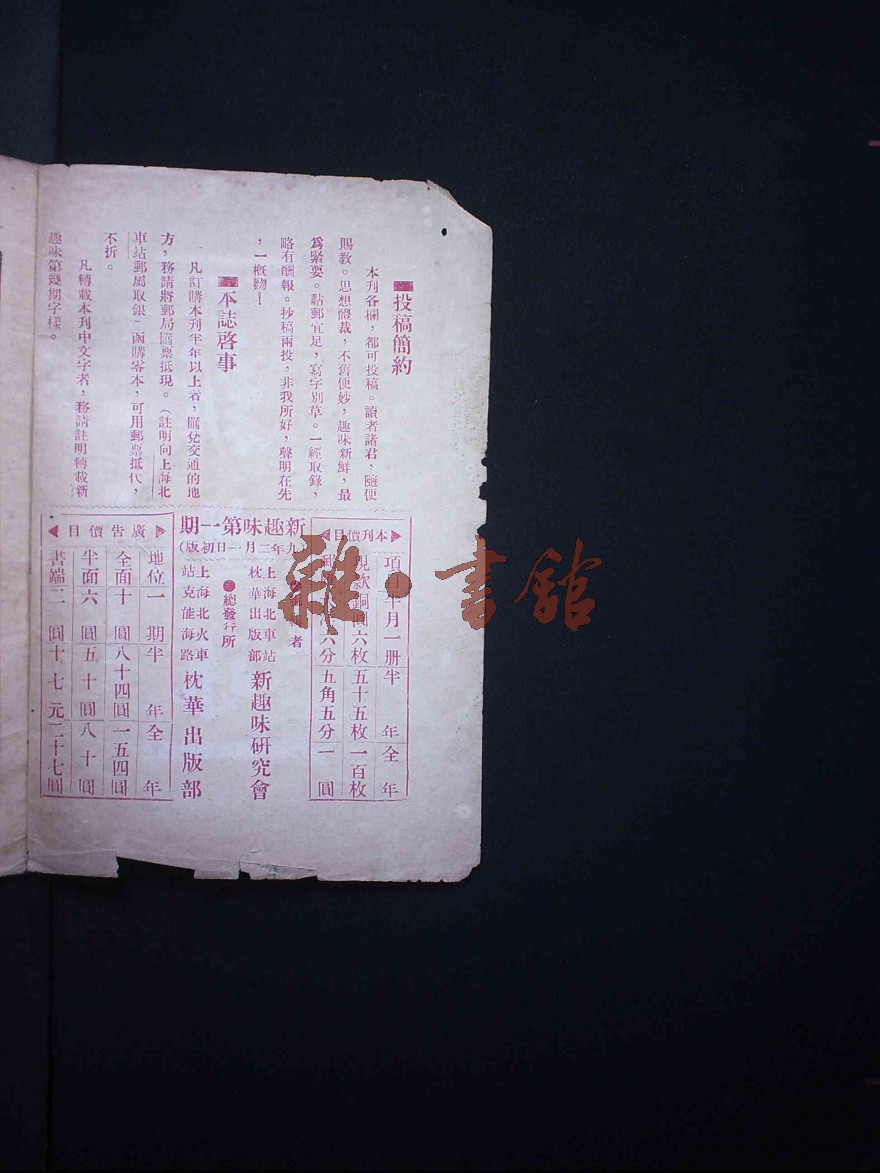 投稿簡約
本刊各欄，都可投稿。讀者諸君，隨便
賜教。思想體裁，不舊便妙，趣味新鮮，最
爲緊要。黏郵宜足，寫字別草。一經取錄，
略有酬報。抄稿兩投，非我所好，聲明在先
，一槪勿！
本誌啓事
凡訂購本刊半年以上者，匯兌交通的地
方，務請將郵局匯票抵現。（註明向上海北
車站郵局取銀）函購零本，可用郵票抵代，
不折。
凡轉載本刊中文字者，務請註明轉載新
趣味第幾期字樣。
本刊價目
項目 半月一册 半年 全年
現款 銅圓六枚 五十五枚 一百枚
六分 五角五分 一圓
新趣味第一期
九年二月一日初版）
者
上海北車站
枕華出版部
新趣味研究會
總發行所
上海北火車
站克能海路
枕華出版部
廣告價目
地位 一期 半年 全年
全面 十圓 八十四圓 一五四圓
半面 六圓 五十圓 八十圓
書端 二圓 十七元 二十七圓
雜·書館